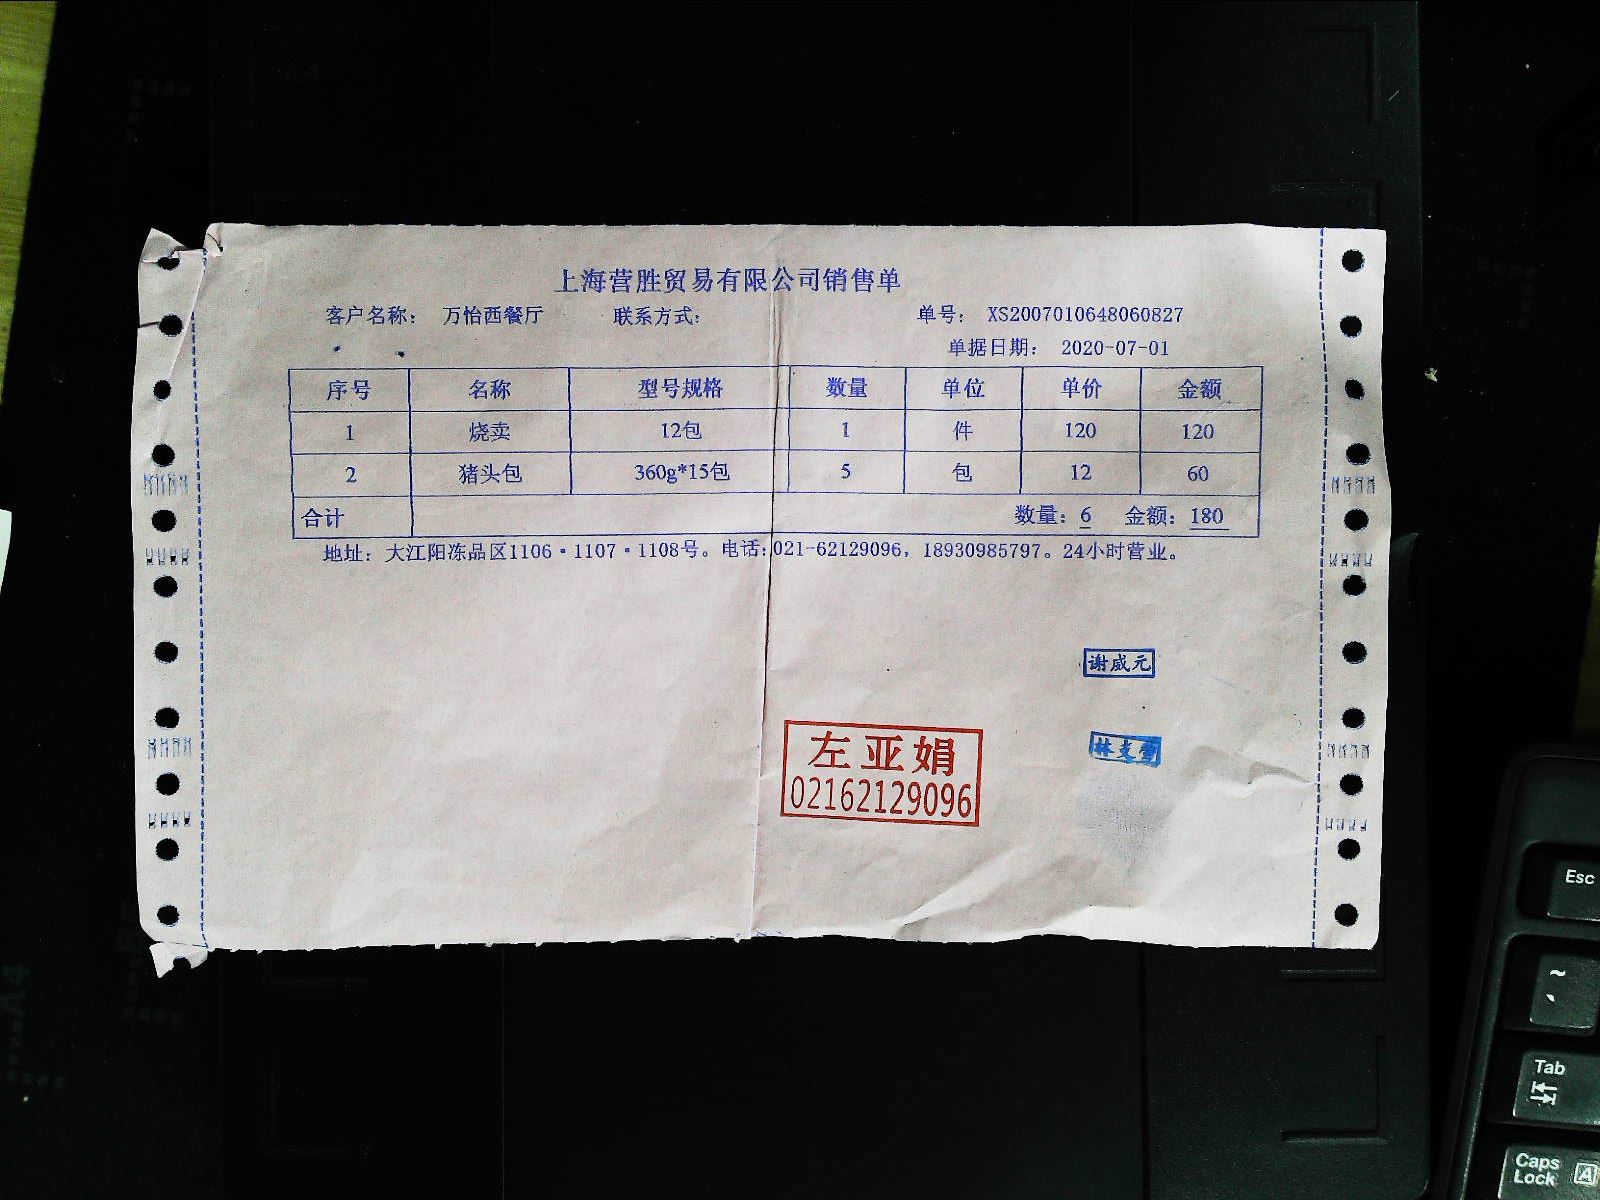 上海营胜贸易有限公司销售单
客户名称： 万怡西餐厅 联系方式： 单号： XS2007010648060827
单据日期： 2020-07-01
序号 名称 型号规格 数量 单位 单价 金额
1 烧卖 12包 1 件 120 120
2 猪头包 360g*15包 5 包 12 60
合计 数量：6 金额：180
地址：大江阳冻品区1106·1107·1108号。电话：021-62129096，18930985797。24小时营业。
谢威元
林支营
左亚娟
02162129096
Esc
~
Tab
Caps Lock
A